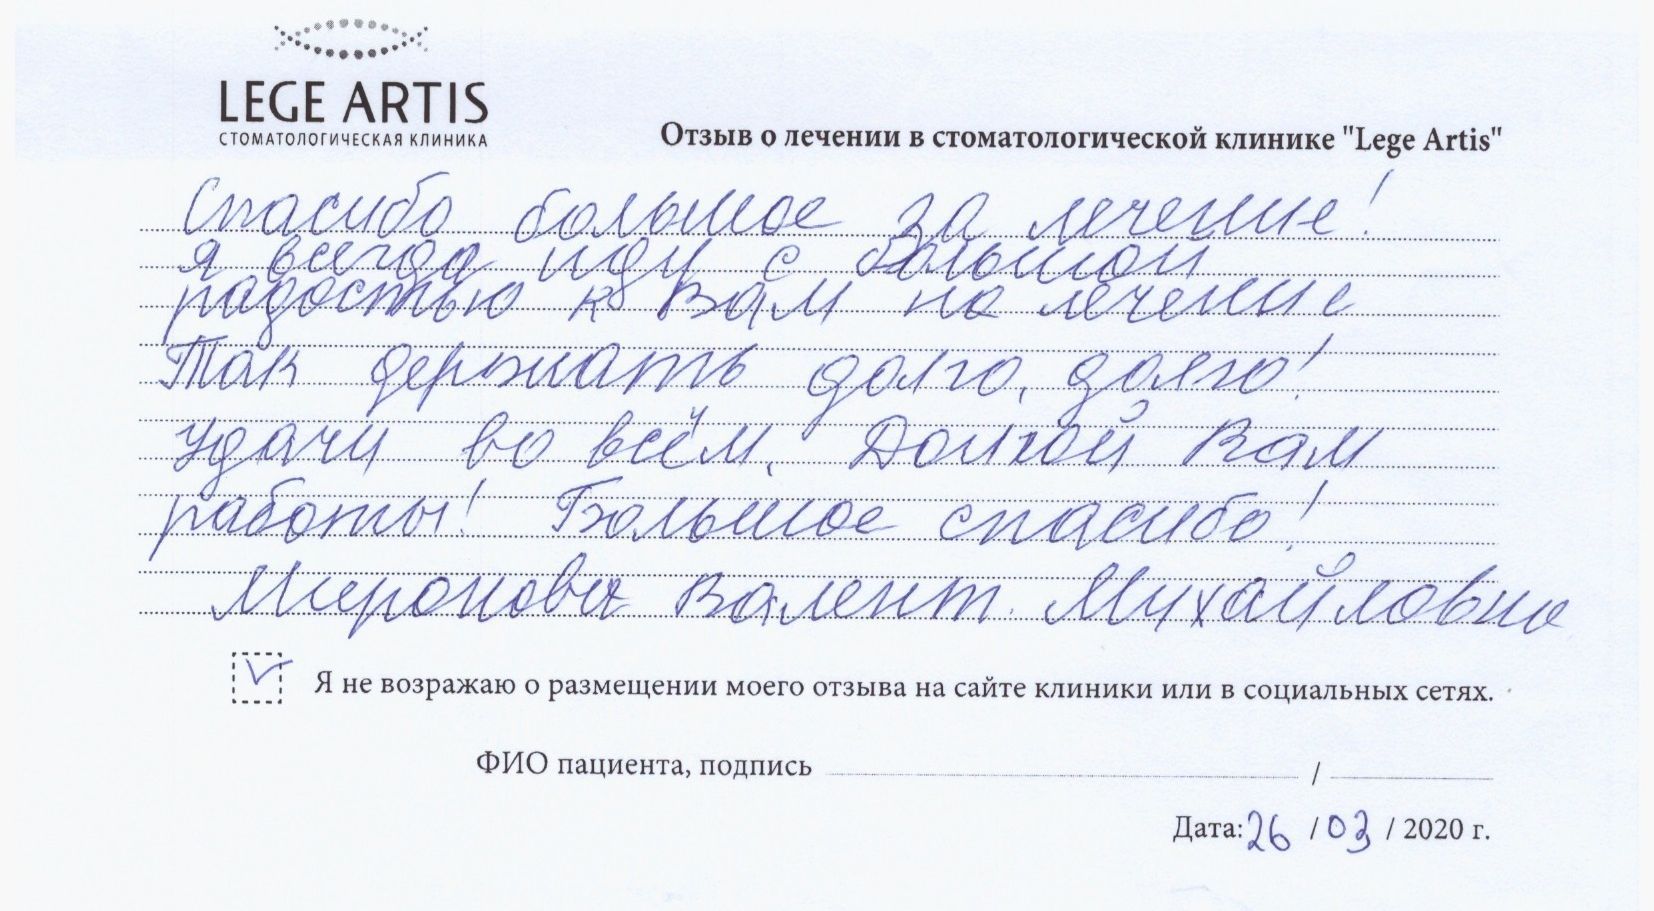 LEGE ARTIS
СТОМАТОЛОГИЧЕСКАЯ КЛИНИКА
Отзыв о лечении в стоматологической клинике "Lege Artis"
Спасибо большое за лечение!
я всегда иду с большой
радостью к Вам на лечение
Так держать долго, долго!
Удачи во всём, Долгой Вам
работы! Большое спасибо!
Миронова Валент. Михайловна
Я не возражаю о размещении моего отзыва на сайте клиники или в социальных сетях.
ФИО пациента, подпись /
Дата: 26 / 03 / 2020 г.